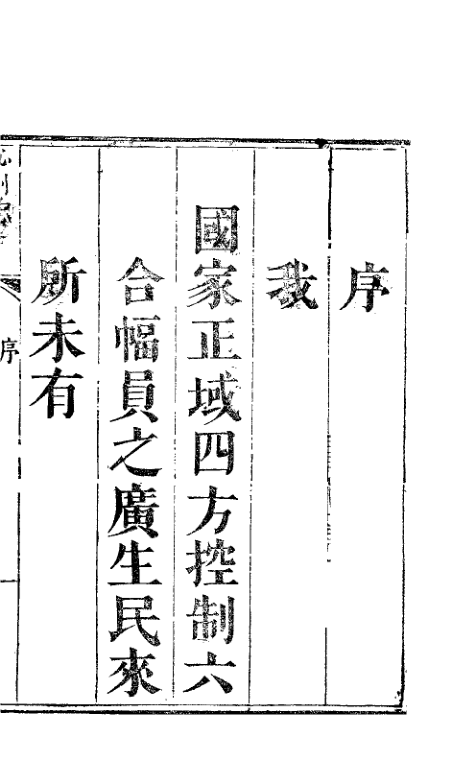 序
我
國家正域四方控制六
合幅員之廣生民來
所未有
序